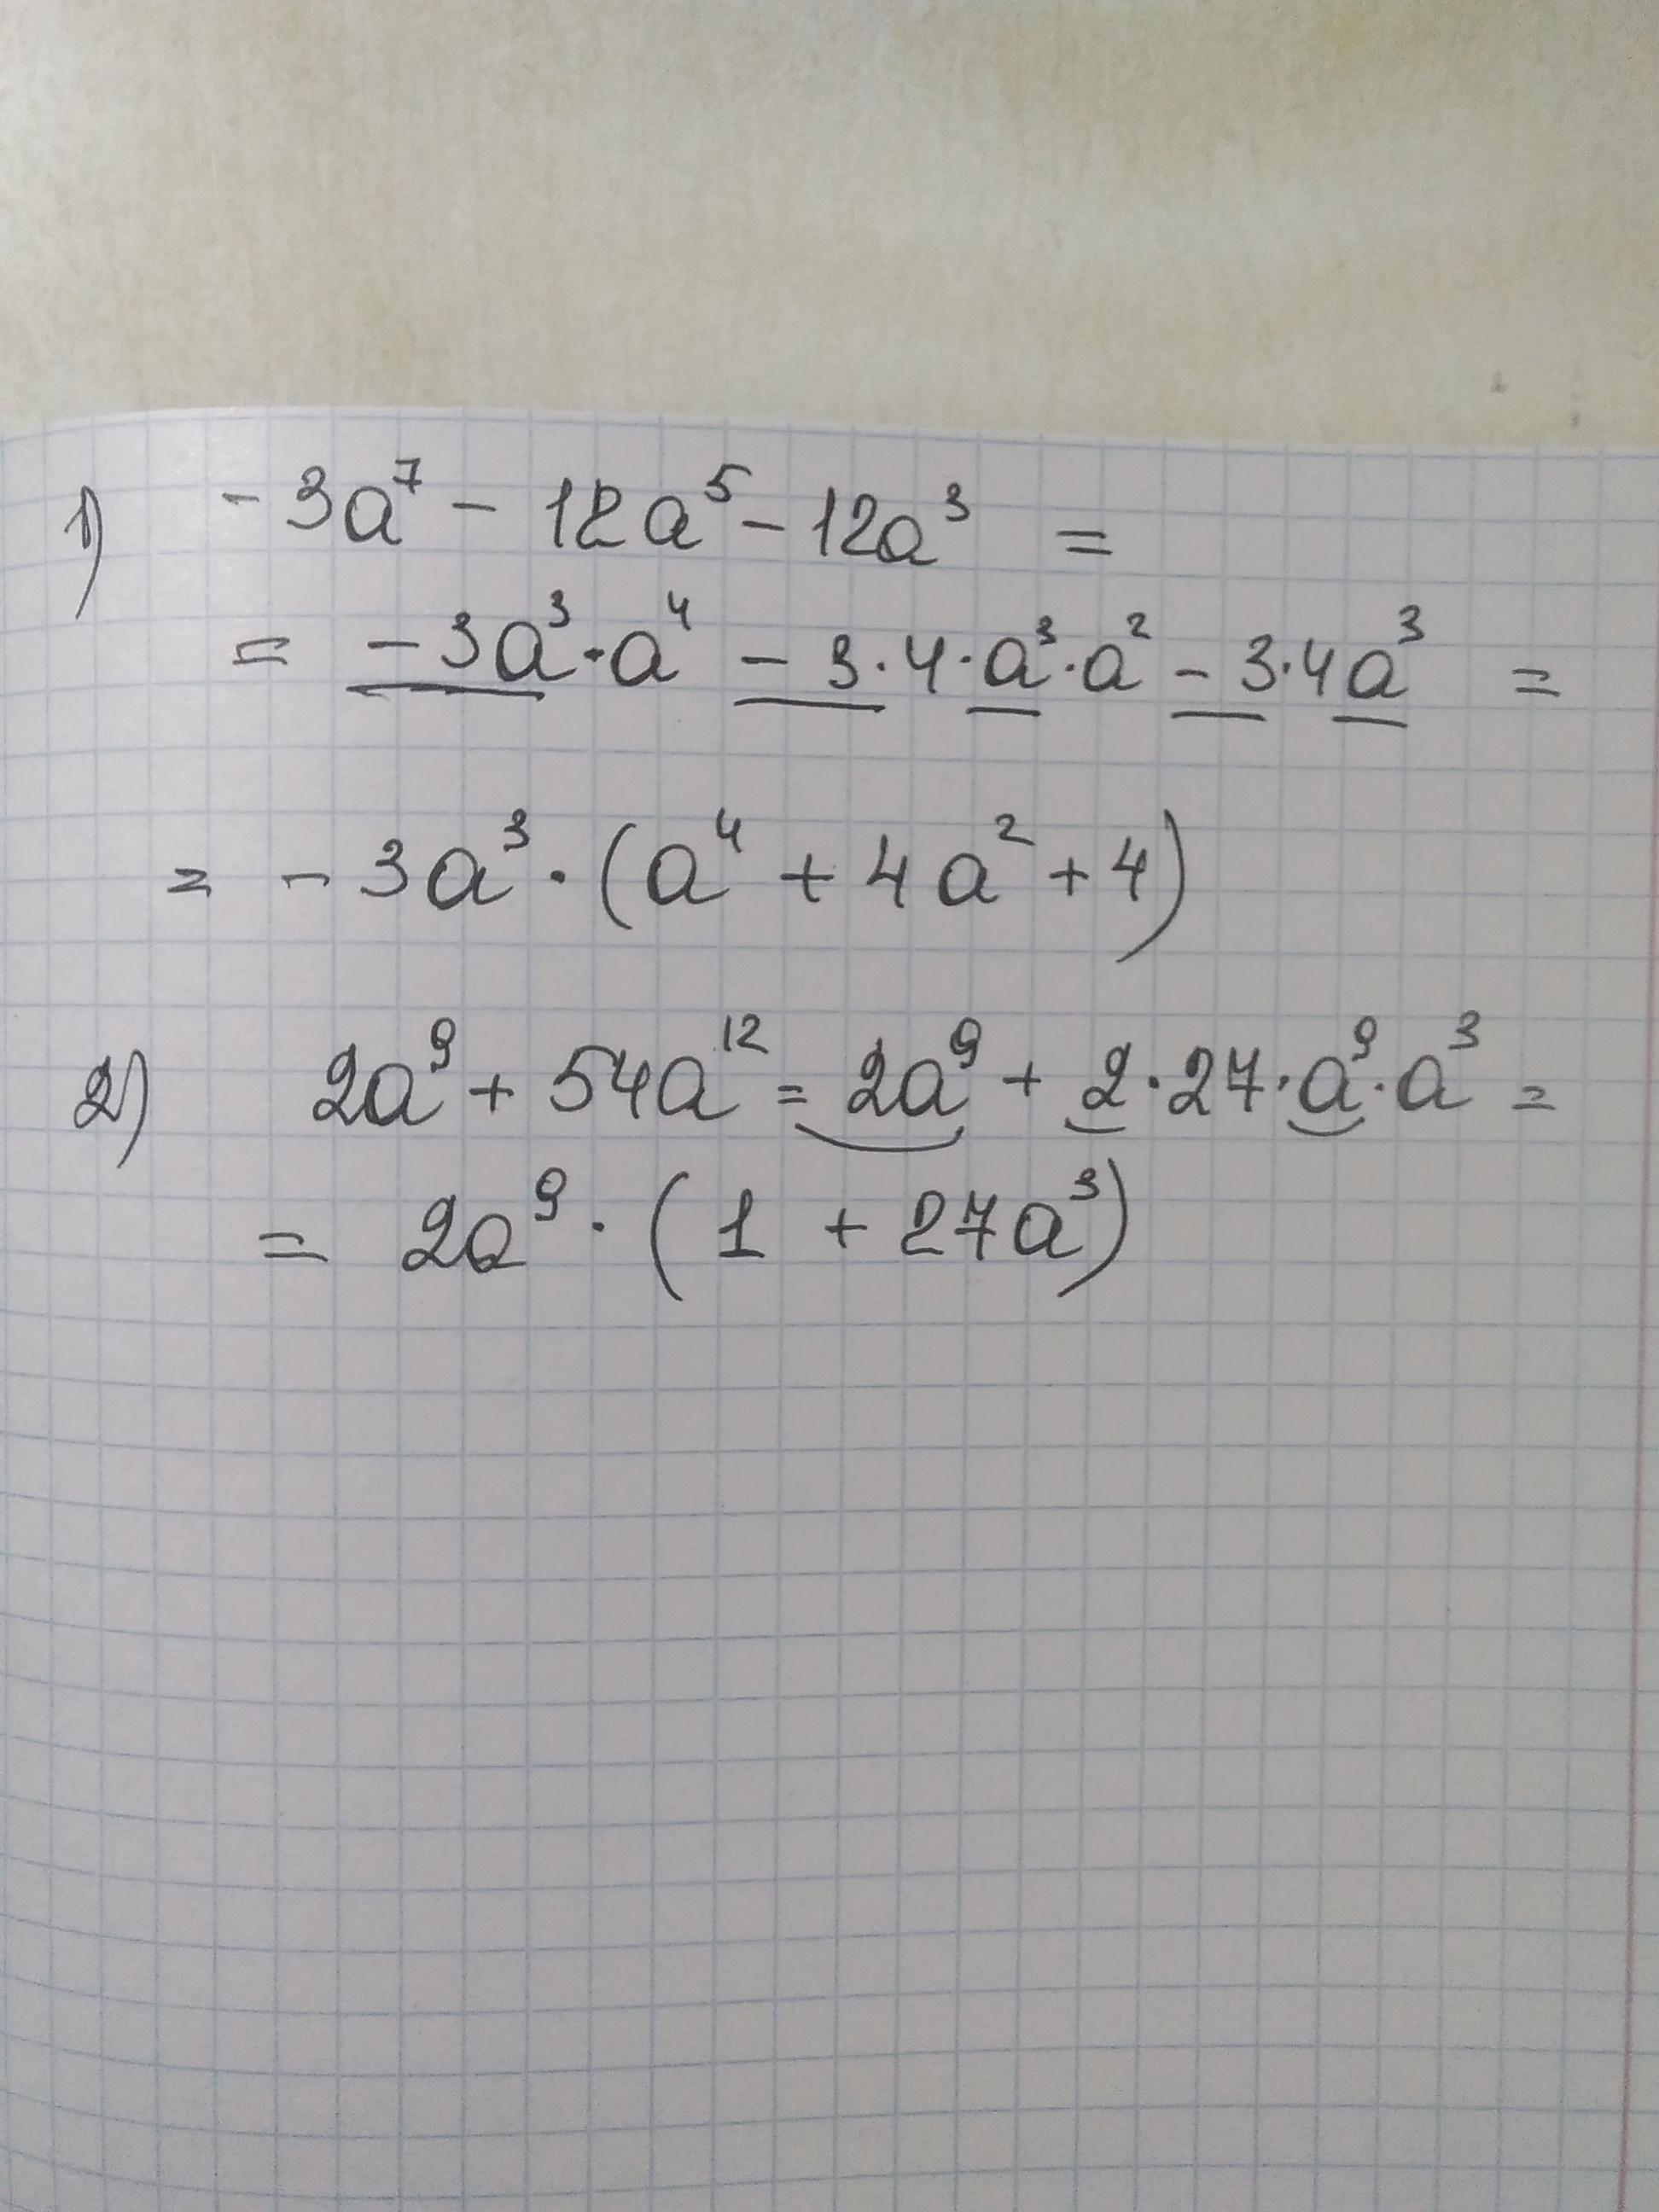 1) -3a⁷ - 12a⁵ - 12a³ =
= -3a³·a⁴ - 3·4·a³·a² - 3·4a³ =
= -3a³·(a⁴ + 4a² + 4)
2) 2a⁹ + 54a¹² = 2a⁹ + 2·27·a⁹·a³ =
= 2a⁹·(1 + 27a³)